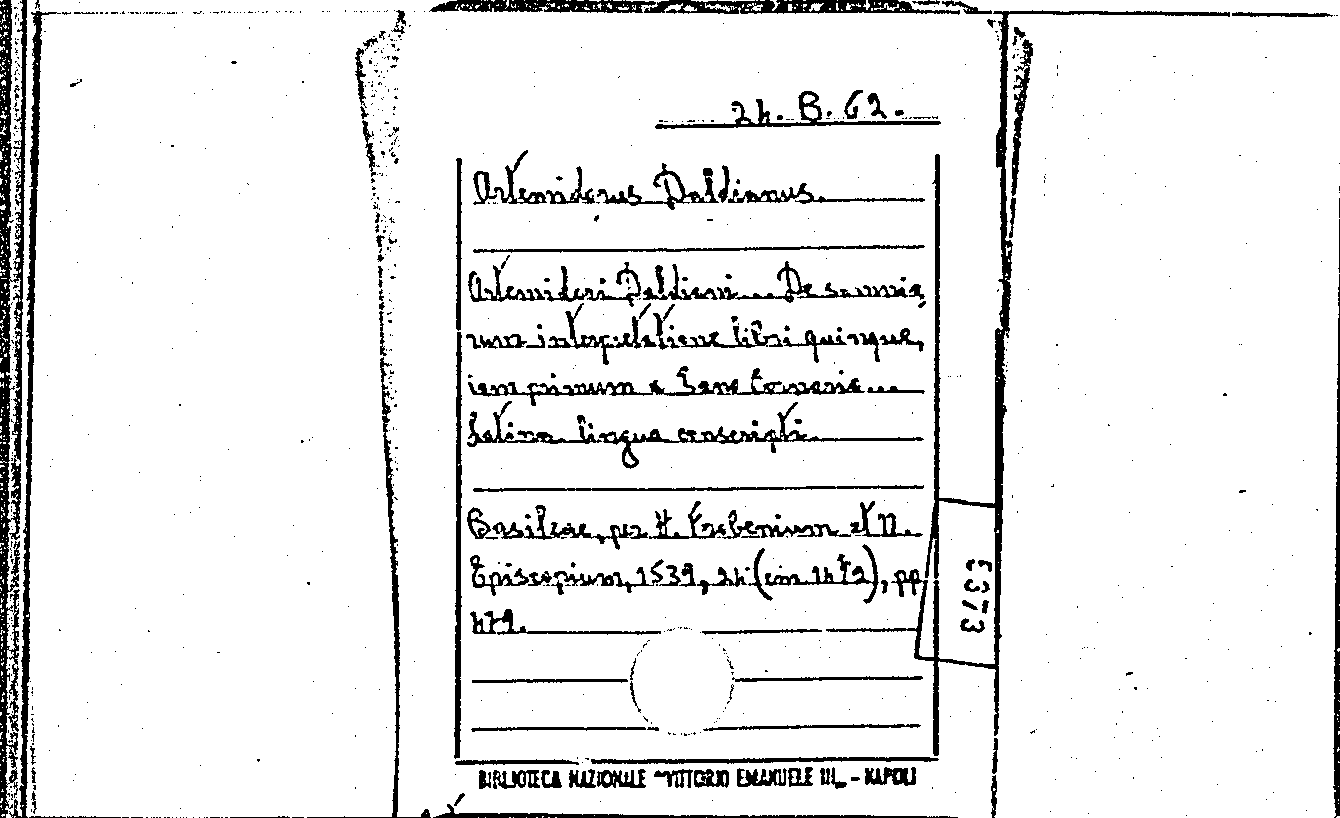 24. B. 62.
Artemidorus Daldianus.
Artemidori Daldiani... De somnio,
rum interpretatione libri quinque,
iam primum a Iano Cornario...
Latina lingua conscripti.
Basileae, per H. Frobenium et N.
Episcopium, 1539, 24 (cm 14 ), pp
479.
BIBLIOTECA NAZIONALE "VITTORIO EMANUELE III„ - NAPOLI